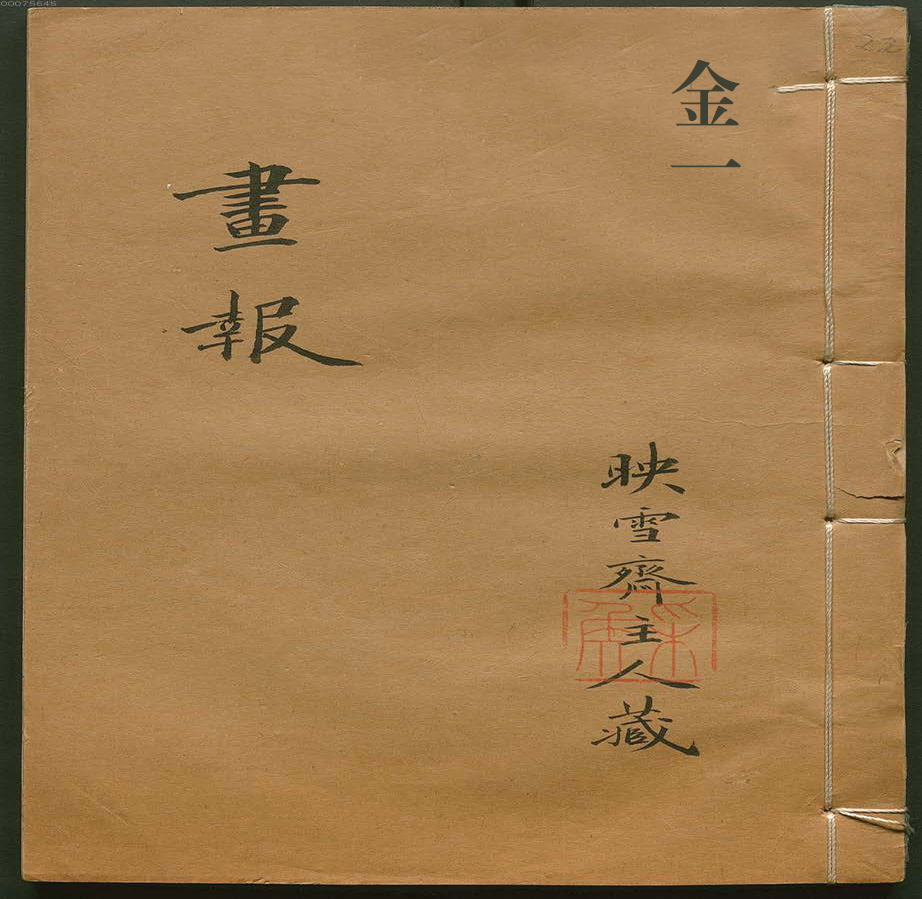 00075645
金一
映雪齋主人藏
畫報